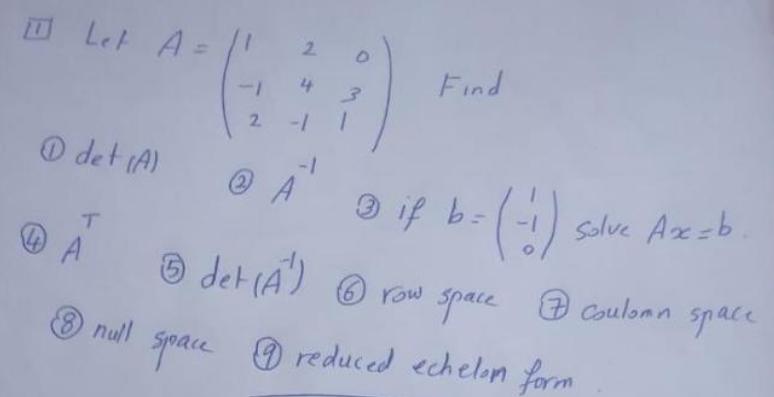 1 Let A = ( 1 2 0 Find
-1 4 3
2 -1 1 )
① det(A) ② A⁻¹ ③ if b = ( 1 -1 0 ) solve Ax=b.
④ Aᵀ ⑤ det(A⁻¹) ⑥ row space ⑦ coulomn space
⑧ null space ⑨ reduced echelom form.